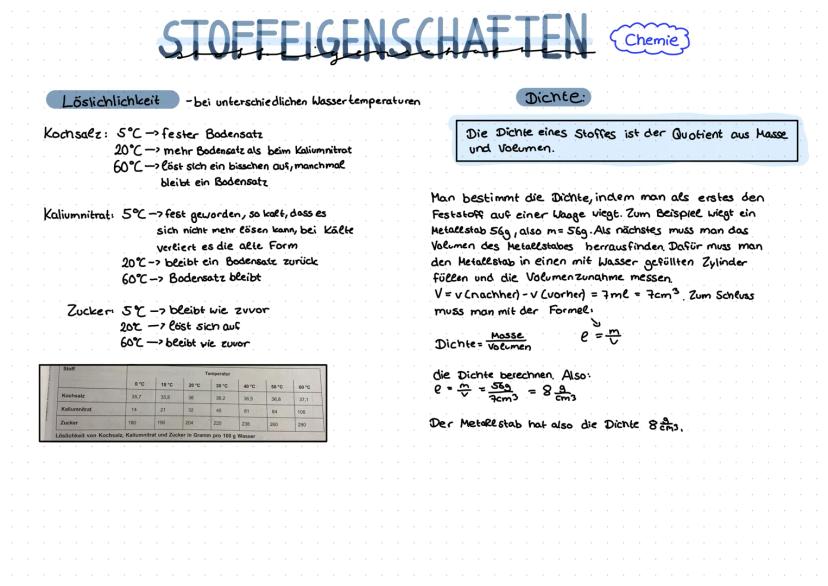 STOFFEIGENSCHAFTEN
stoffeigenschaften
Chemie
Löslichlichkeit - bei unterschiedlichen Wassertemperaturen
Kochsalz: 5°C → fester Bodensatz
20°C → mehr Bodensatz als beim Kaliumnitrat
60°C → löst sich ein bisschen auf, manchmal
bleibt ein Bodensatz
Kaliumnitrat: 5°C → fest geworden, so kalt, dass es
sich nicht mehr lösen kann, bei Kälte
verliert es die alte Form
20°C → bleibt ein Bodensatz zurück
60°C → Bodensatz bleibt
Zucker: 5°C → bleibt wie zuvor
20°C → löst sich auf
60°C → bleibt wie zuvor
Stoff Temperatur
0 °C 10 °C 20 °C 30 °C 40 °C 50 °C 60 °C
Kochsalz 35,7 35,8 36 36,2 36,5 36,8 37,1
Kaliumnitrat 14 21 32 45 61 84 106
Zucker 180 190 204 220 238 260 290
Löslichkeit von Kochsalz, Kaliumnitrat und Zucker in Gramm pro 100 g Wasser
Dichte:
Die Dichte eines Stoffes ist der Quotient aus Masse
und Volumen.
Man bestimmt die Dichte, indem man als erstes den
Feststoff auf einer Waage wiegt. Zum Beispiel wiegt ein
Metallstab 56g, also m= 56g. Als nächstes muss man das
Volumen des Metallstabes herrausfinden. Dafür muss man
den Metallstab in einen mit Wasser gefüllten Zylinder
füllen und die Volumenzunahme messen.
V = v (nachher) - v (vorher) = 7ml = 7cm³. Zum Schluss
muss man mit der Formel:
Dichte = Masse/Volumen ρ = m/V
die Dichte berechnen. Also:
ρ = m/V = 56g/7cm³ = 8 g/cm³
Der Metallstab hat also die Dichte 8 g/cm³.